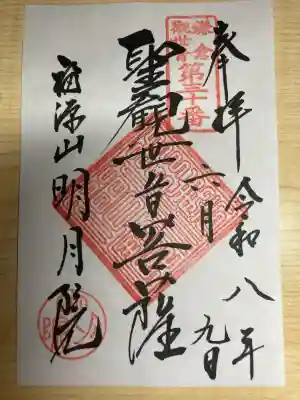 奉拝
令和八年
六月九日
鎌倉
観世音
第三十番
聖観世音菩薩
福源山明月院